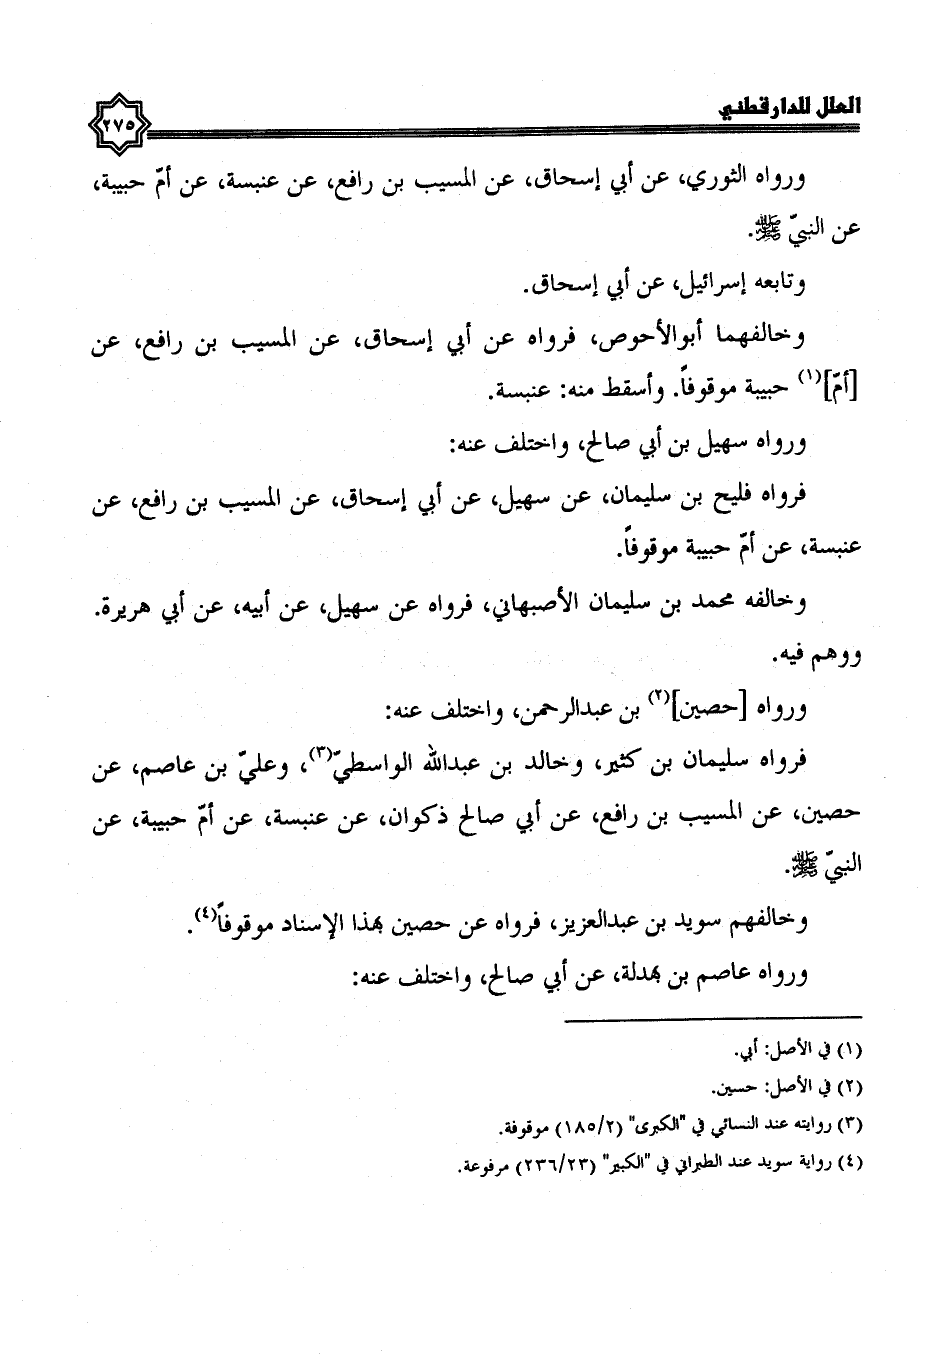 العلل للدارقطني
٢٧٥
ورواه الثوري، عن أبي إسحاق، عن المسيب بن رافع، عن عنبسة، عن أمّ حبيبة،
عن النبيّ ﷺ.
وتابعه إسرائيل، عن أبي إسحاق.
وخالفهما أبوالأحوص، فرواه عن أبي إسحاق، عن المسيب بن رافع، عن
[أمّ](١) حبيبة موقوفاً. وأسقط منه: عنبسة.
ورواه سهيل بن أبي صالح، واختلف عنه:
فرواه فليح بن سليمان، عن سهيل، عن أبي إسحاق، عن المسيب بن رافع، عن
عنبسة، عن أمّ حبيبة موقوفاً.
وخالفه محمد بن سليمان الأصبهاني، فرواه عن سهيل، عن أبيه، عن أبي هريرة.
ووهم فيه.
ورواه [حصين](٢) بن عبدالرحمن، واختلف عنه:
فرواه سليمان بن كثير، وخالد بن عبدالله الواسطيّ(٣)، وعليّ بن عاصم، عن
حصين، عن المسيب بن رافع، عن أبي صالح ذكوان، عن عنبسة، عن أمّ حبيبة، عن
النبيّ ﷺ.
وخالفهم سويد بن عبدالعزيز، فرواه عن حصين بهذا الإسناد موقوفاً(٤).
ورواه عاصم بن بهدلة، عن أبي صالح، واختلف عنه:
(١) في الأصل: أبي.
(٢) في الأصل: حسين.
(٣) روايته عند النسائي في "الكبرى" (١٨٥/٢) موقوفة.
(٤) رواية سويد عند الطبراني في "الكبير" (٢٣٦/٢٣) مرفوعة.